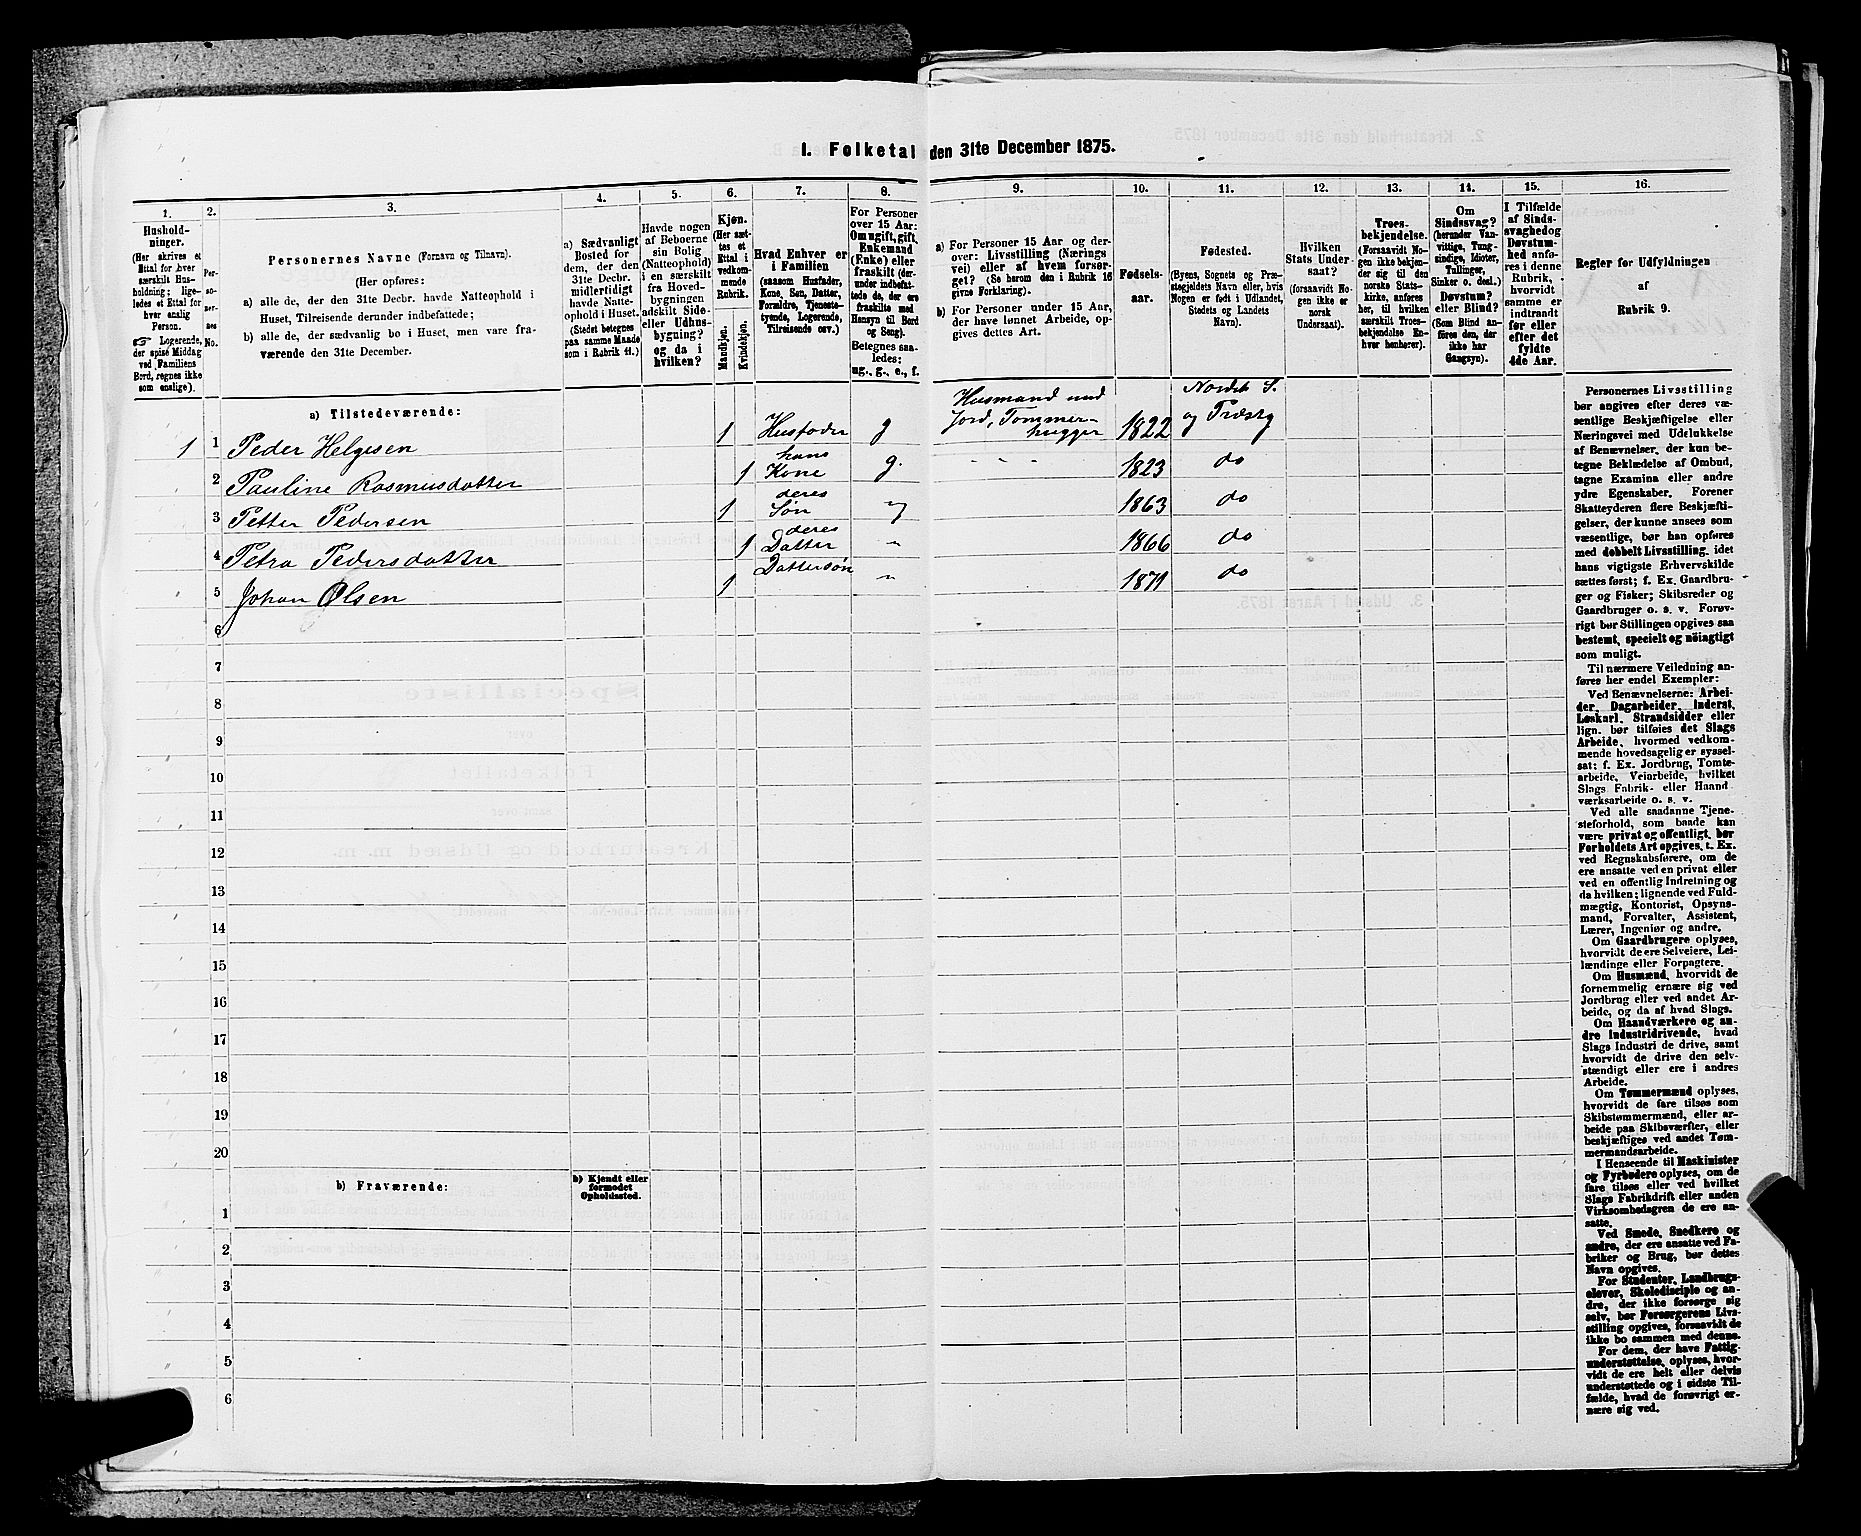 I. Folketal den 31te December 1875.
1. 2. 3. 4. 5. 6. 7. 8. 9. 10. 11. 12. 13. 14. 15. 16.
Hushold-
ninger.
(Her skrives et
Ettal for hver
særskilt Hus-
holdning; lige-
ledes et Ettal for
hver enslig
Person.
☞ Logerende,
der spise Middag
ved Familiens
Bord, regnes ikke
som enslige).
Per-
so-
ner-
nes
No.
Personernes Navne (Fornavn og Tilnavn).
(Her opføres:
a) alle de, der den 31te Decbr. havde Natteophold i
Huset, Tilreisende derunder indbefattede;
b) alle de, der sædvanlig bo i Huset, men vare fra-
værende den 31te December.
a) Sædvanligt
Bosted for
dem, der den
31te Decbr.
midlertidigt
havde Natte-
ophold i Huset.
(Stedet betegnes
paa samme Maade
som i Rubrik 11.)
Havde nogen
af Beboerne
sin Bolig
(Natteophold)
i en særskilt
fra Hoved-
bygningen
adskilt Side-
eller Udhus-
bygning?
og da i
hvilken?
Kjøn.
(Her sæt-
tes et
Ettal i
vedkom-
mende
Rubrik.
Mandkjøn.
Kvindekjøn.
Hvad Enhver er
i Familien
(saasom Husfader,
Kone, Søn, Datter,
Forældre, Tjeneste-
tyende, Logerende,
Tilreisende osv.)
For Personer
over 15 Aar:
Om ugift, gift,
Enkemand
(Enke) eller
fraskilt (der-
under indbefat-
tede de, der ere
fraskilte med
Hensyn til Bord
og Seng).
Betegnes saa-
ledes:
ug., g., e., f.
a) For Personer 15 Aar og der-
over: Livsstilling (Nærings
vei) eller af hvem forsør-
get? (Se herom den i Rubrik 16
givne Forklaring).
b) For Personer under 15 Aar,
der have lønnet Arbeide, op-
gives dettes Art.
Fødsels-
aar.
Fødested.
(Byens, Sognets og Præ-
stegjeldets Navn eller, hvis
Nogen er født i Udlandet,
Stedets og Landets
Navn).
Hvilken
Stats Under-
saat?
(forsaavidt No-
gen ikke er
norsk
Undersaat).
Troes-
bekjendelse.
(Forsaavidt No-
gen ikke bekjen-
der sig til den
norske Stats-
kirke, anføres
her, til hvilken
særskilt Troes-
bekjendelse En-
hver henhører).
Om
Sindssvag?
(herunder Van-
vittige, Tung-
sindige, Idioter,
Tullinger,
Sinker o. desl.)
Døvstum?
eller Blind?
(Som Blind an-
føres den, der
ikke har
Gangsyn).
I Tilfælde
af Sinds-
svaghed og
Døvstum-
hed anfø-
res i denne
Rubrik,
hvorvidt
samme er
indtraadt
før eller
efter det
fyldte
4de Aar.
Regler for Udfyldningen
af
Rubrik 9.
a) Tilstedeværende:
1 1 Peder Helgesen 1 Husfader g Husmand med Jord, Tommerhugger 1822 Nordre S. og Præstg
2 Pauline Rasmusdatter 1 hans Kone g. - - - 1823 do
3 Petter Pedersen 1 deres Søn " 1863 do
4 Petra Pedersdatter 1 deres Datter " 1866 do
5 Johan Olsen 1 Dattersøn " 1871 do
6
7
8
9
10
11
12
13
14
15
16
17
18
19
20
b) Fraværende:
b) Kjendt eller
formodet
Opholdssted.
1
2
3
4
5
6
Personernes Livsstilling
bør angives efter deres væ-
sentlige Beskjæftigelse eller
Næringsvei med Udelukkelse
af Benævnelser, der kun be-
tegne Beklædelse af Ombud,
tagne Examina eller andre
ydre Egenskaber. Forener
Skatteyderen flere Beskjæfti-
gelser, der kunne ansees som
væsentlige, bør han opføres
med dobbelt Livsstilling, idet
hans vigtigste Erhvervskilde
sættes først; f. Ex. Gaardbru-
ger og Fisker; Skibsreder og
Gaardbruger o. s. v. Forøv-
rigt bør Stillingen opgives saa
bestemt, specielt og nøiagtigt
som muligt.
Til nærmere Veiledning an-
føres her endel Exempler:
Ved Benævnelserne: Arbei-
der, Dagarbeider, Inderst,
Løskarl, Strandsidder eller
lign. bør tilføies det Slags
Arbeide, hvormed vedkom-
mende hovedsagelig er syssel-
sat; f. Ex. Jordbrug, Tomte-
arbeide, Veiarbeide, hvilket
Slags Fabrik- eller Haand
værksarbeide o. s. v.
Ved alle saadanne Tjene-
steforhold, som baade kan
være privat og offentligt, bør
Forholdets Art opgives, t. Ex.
ved Regnskabsførere, om de
ere ansatte ved en privat eller
ved en offentlig Indretning og
da hvilken; lignende ved Fuld-
mægtig, Kontorist, Opsyns-
mand, Forvalter, Assistent,
Lærer, Ingeniør og andre.
Om Gaardbrugere oplyses,
hvorvidt de ere Selveiere, Lei-
lændinge eller Forpagtere.
Om Husmænd, hvorvidt de
fornemmelig ernære sig ved
Jordbrug eller ved andet Ar-
beide, og da af hvad Slags.
Om Haandværkere og an-
dre Industridrivende, hvad
Slags Industri de drive, samt
hvorvidt de drive den selv-
stændigt eller ere i andres
Arbeide.
Om Tømmermænd oplyses,
hvorvidt de fare tilsøs som
Skibstømmermænd, eller ar-
beide paa Skibsværfter, eller
beskjæftiges ved andet Tøm-
mermandsarbeide.
I Henseende til Maskinister
og Fyrbødere oplyses, om de
fare tilsøs eller ved hvilket
Slags Fabrikdrift eller anden
Virksomhedsgren de ere an-
satte.
Ved Smede, Snedkere og
andre, der ere ansatte ved Fa-
briker og Brug, bør dettes
Navn opgives.
For Studenter, Landbrugs-
elever, Skoledisciple og an-
dre, der ikke forsørge sig
selv, bør Forsørgerens Livs-
stilling opgives, forsaavidt de
ikke bo sammen med denne.
For dem, der have Fattig-
understøttelse, oplyses, hvor-
vidt de ere helt eller delvis
understøttede og i sidste Til-
fælde, hvad de forøvrigt er-
nære sig ved.